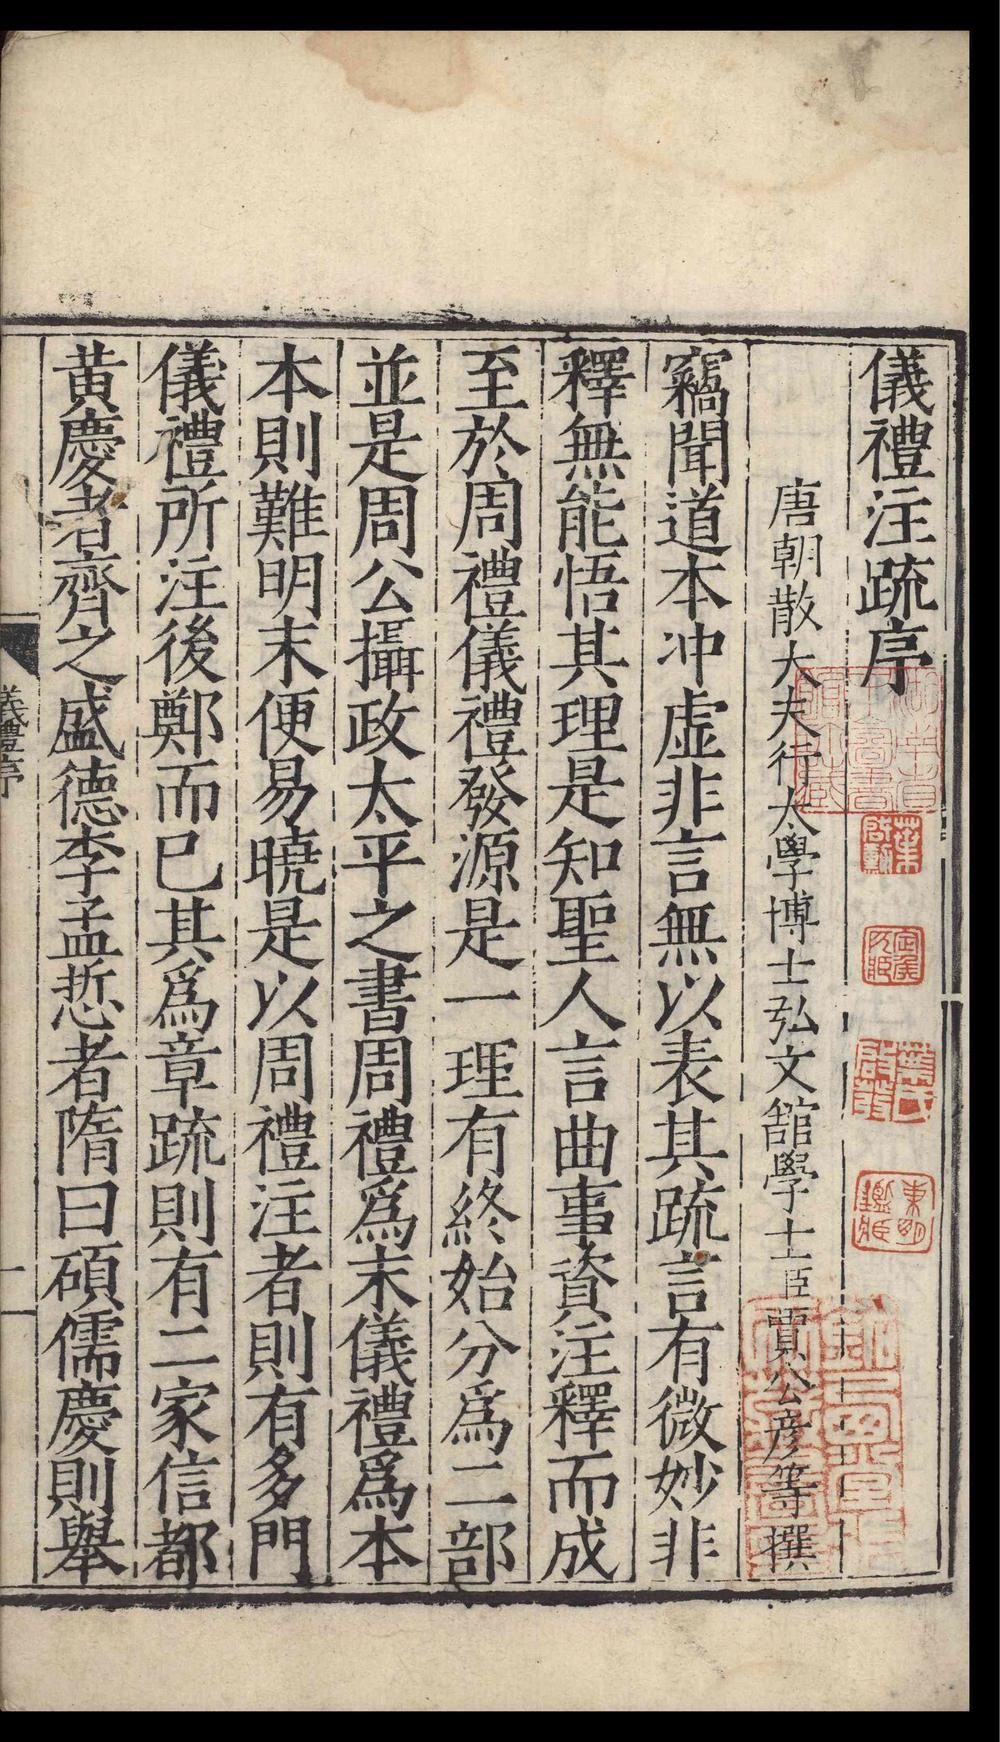 儀禮注疏序
唐朝散大夫行太學博士弘文舘學士臣賈公彦等撰
竊聞道本冲虚非言無以表其疏言有微妙非
釋無能悟其理是知聖人言曲事資注釋而成
至於周禮儀禮發源是一理有終始分爲二部
並是周公攝政太平之書周禮爲末儀禮爲本
本則難明末便易曉是以周禮注者則有多門
儀禮所注後鄭而已其爲章疏則有二家信都
黄慶者齊之盛德李孟悊者隋曰碩儒慶則舉
儀禮序
一
葉啓勳
定侯所藏
葉啓發
東明鑑藏